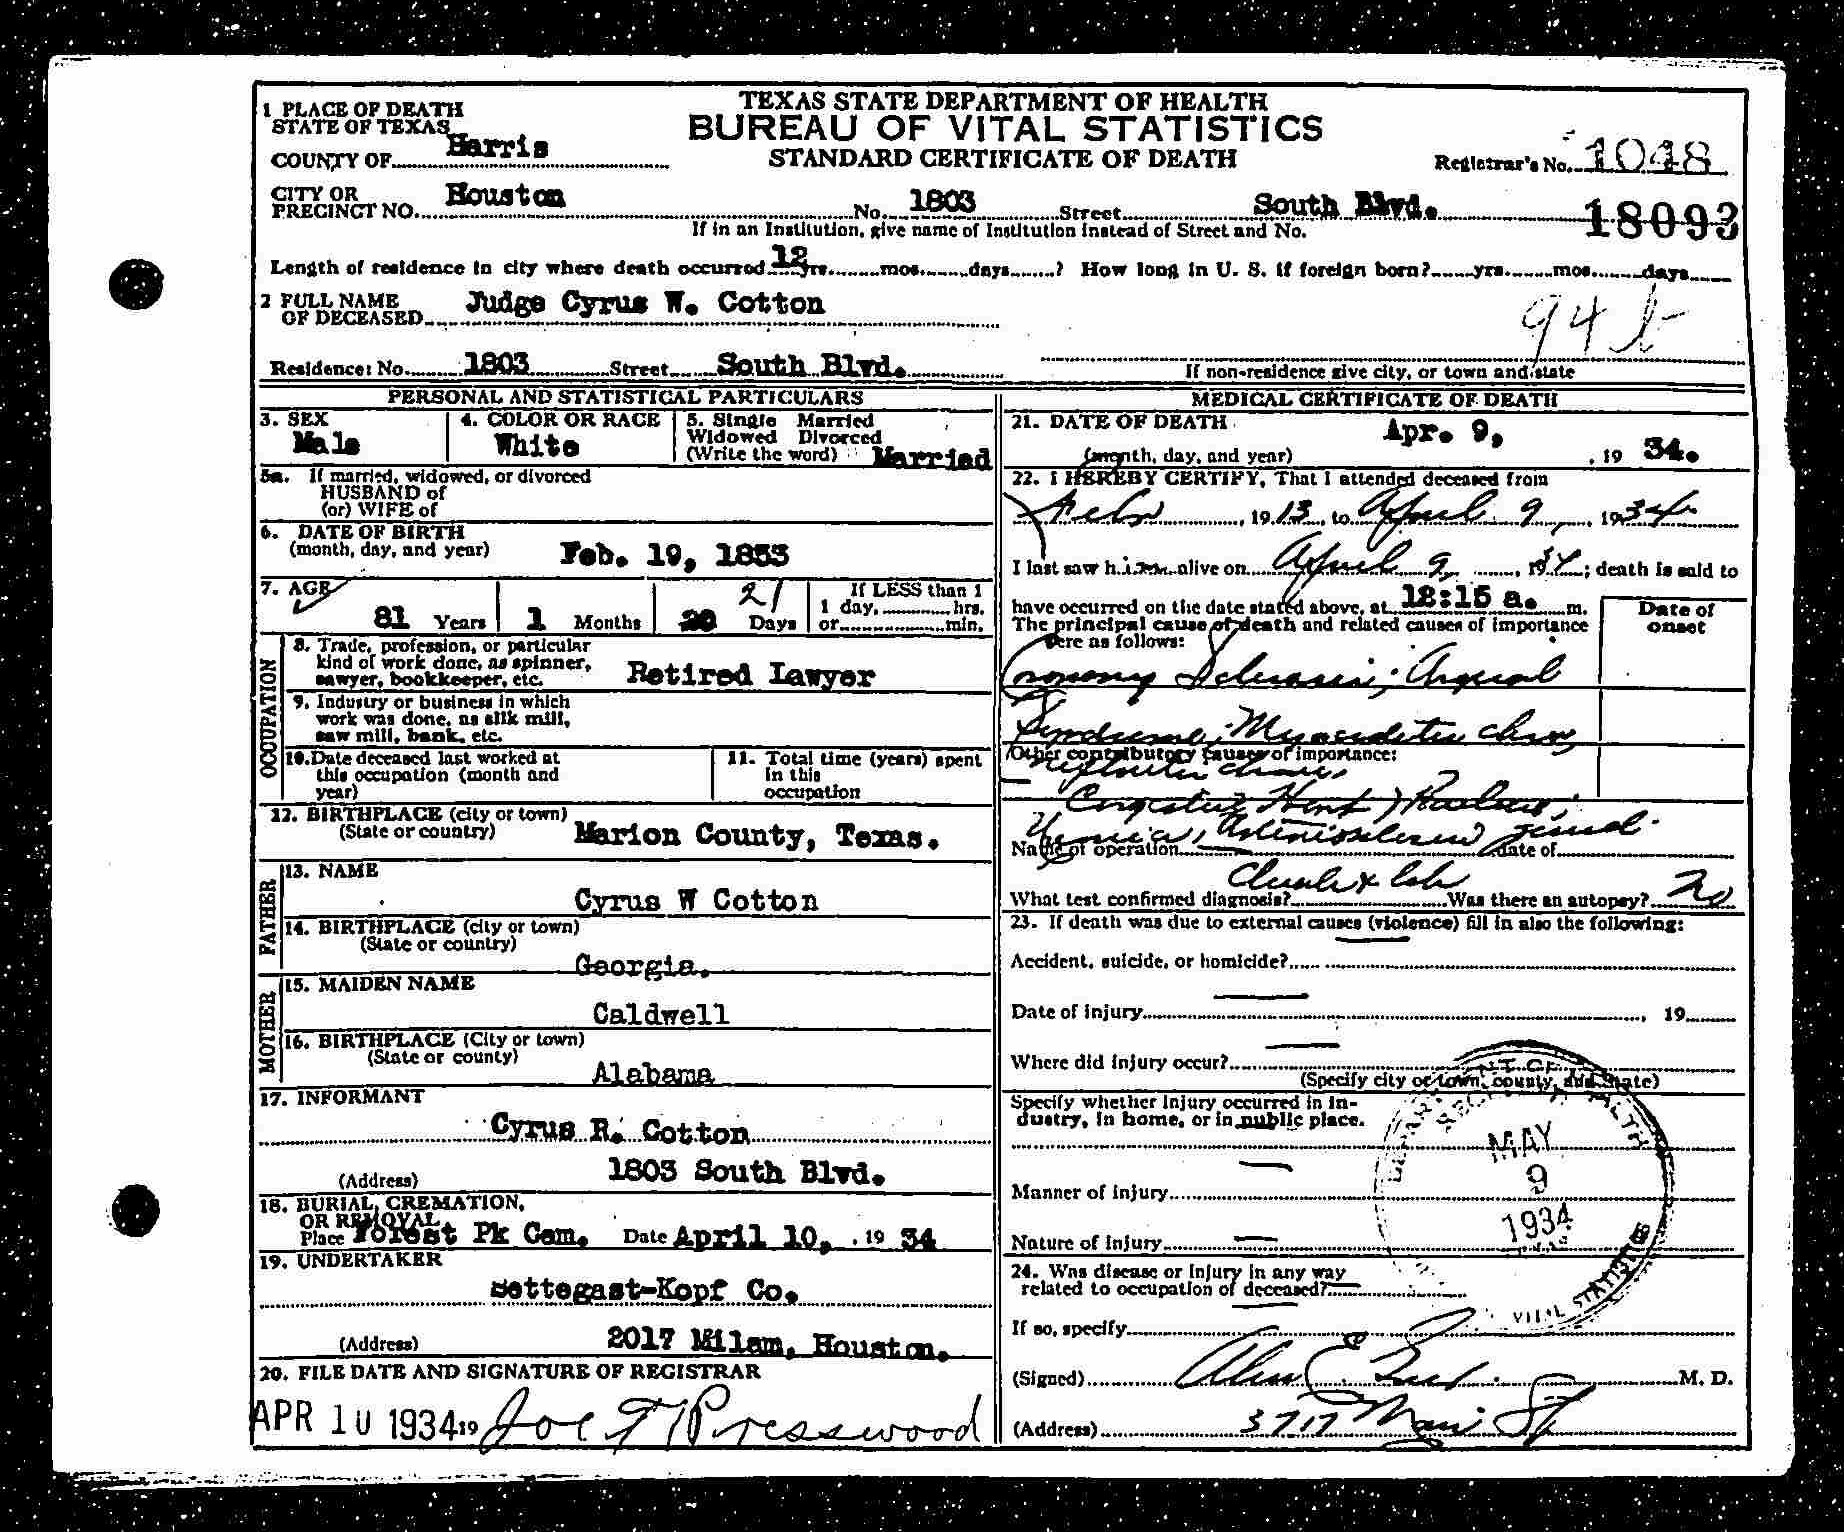 TEXAS STATE DEPARTMENT OF HEALTH
BUREAU OF VITAL STATISTICS
STANDARD CERTIFICATE OF DEATH
1 PLACE OF DEATH
STATE OF TEXAS
COUNTY OF Harris
Registrar's No. 1048
CITY OR
PRECINCT NO. Houston No. 1803 Street South Blvd.
18093
If in an Institution, give name of Institution instead of Street and No.
Length of residence in city where death occurred 12 yrs. mos. days ? How long in U. S. if foreign born? yrs. mos. days
2 FULL NAME
OF DECEASED Judge Cyrus W. Cotton
94
Residence: No. 1803 Street South Blvd.
If non-residence give city, or town and state
PERSONAL AND STATISTICAL PARTICULARS
3. SEX
Male
4. COLOR OR RACE
White
5. Single Married
Widowed Divorced
(Write the word) Married
5a. If married, widowed, or divorced
HUSBAND of
(or) WIFE of
6. DATE OF BIRTH
(month, day, and year) Feb. 19, 1853
7. AGE
81 Years 1 Months 20 21 Days
If LESS than 1
1 day, hrs.
or min.
OCCUPATION
8. Trade, profession, or particular
kind of work done, as spinner,
sawyer, bookkeeper, etc. Retired Lawyer
9. Industry or business in which
work was done, as silk mill,
saw mill, bank, etc.
10. Date deceased last worked at
this occupation (month and
year)
11. Total time (years) spent
in this
occupation
12. BIRTHPLACE (city or town)
(State or country) Marion County, Texas.
FATHER
13. NAME
Cyrus W Cotton
14. BIRTHPLACE (city or town)
(State or country)
Georgia.
MOTHER
15. MAIDEN NAME
Caldwell
16. BIRTHPLACE (City or town)
(State or county)
Alabama
17. INFORMANT
Cyrus R. Cotton
(Address) 1803 South Blvd.
18. BURIAL, CREMATION,
OR REMOVAL
Place Forest Pk Cem. Date April 10, 19 34
19. UNDERTAKER
Settegast-Kopf Co.
(Address) 2017 Milam, Houston.
20. FILE DATE AND SIGNATURE OF REGISTRAR
APR 10 1934 19 Joe T Presswood
MEDICAL CERTIFICATE OF DEATH
21. DATE OF DEATH
(month, day, and year) Apr. 9, , 19 34.
22. I HEREBY CERTIFY, That I attended deceased from
Feby , 19 13, to April 9, , 19 34
I last saw h im alive on April 9, , 19 34; death is said to
have occurred on the date stated above, at 12:15 a. m.
The principal cause of death and related causes of importance
were as follows:
Date of
onset
Coronary Sclerosis; Anginal
Syndrome, Myocarditis chron,
Other contributory causes of importance:
nephritis chronic,
Congestive Heart Failure;
Uremia, Arteriosclerosis general.
Name of operation date of
What test confirmed diagnosis? Was there an autopsy? No
23. If death was due to external causes (violence) fill in also the following:
Accident, suicide, or homicide?
Date of injury , 19
Where did injury occur?
(Specify city or town, county, and State)
Specify whether injury occurred in in-
dustry, in home, or in public place.
Manner of injury
Nature of injury
24. Was disease or injury in any way
related to occupation of deceased?
If so, specify
(Signed) M. D.
(Address) 3717 Main St
DEPARTMENT OF HEALTH
RECEIVED
MAY
9
1934
VITAL STATISTICS